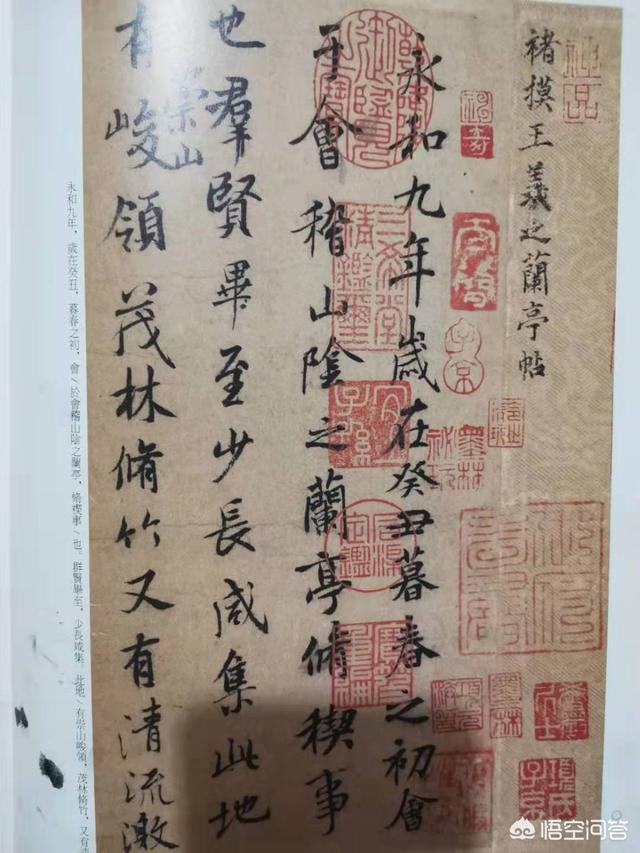 神品
褚摸王羲之蘭亭帖
永和九年歲在癸丑暮春之初會
于會稽山陰之蘭亭脩稧事
也羣賢畢至少長咸集此地
有崇山峻領茂林脩竹又有清流激
子京
墨林秘玩
項氏子京
永和九年，歲在癸丑，暮春之初，會／於會稽山陰之蘭亭，脩禊事／也。群賢畢至，少長咸集。此地／有崇山峻領，茂林脩竹，又有清
悟空问答